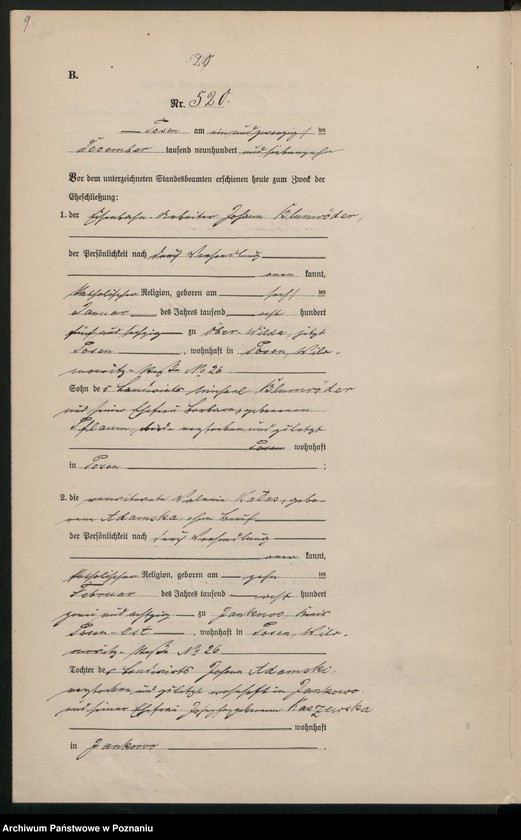 9.
520
B.
Nr. 520.
Posen am einundzwanzigsten
Dezember tausend neunhundert und siebenzehn
Vor dem unterzeichneten Standesbeamten erschienen heute zum Zweck der
Eheschließung:
1. der Eisenbahn-Arbeiter Johann Blumröder,
der Persönlichkeit nach durch Verhandlung
kannt,
katholischer Religion, geboren am sechsten
Januar des Jahres tausend acht hundert
fünf und sechzig zu Ober-Wilda, jetzt
Posen, wohnhaft in Posen, Wila-
mowitz-Straße No 26
Sohn des Landwirts Michael Blumröder
und seiner Ehefrau Barbara, geborenen
Pflaum, verstorben und zuletzt
wohnhaft
in Posen ;
2. die verwitwete Valeria Kałas, gebo-
rene Adamska, ohne Beruf
der Persönlichkeit nach durch Verhandlung
kannt,
katholischer Religion, geboren am zehnten
Februar des Jahres tausend acht hundert
zwei und achtzig zu Jankowo, Kreis
Posen-Ost, wohnhaft in Posen, Wila-
mowitz-Straße No 26
Tochter des Landwirts Johann Adamski,
verstorben und zuletzt wohnhaft in Jankowo
und seiner Ehefrau geborenen Kaszewska
wohnhaft
in Jankowo .
Archiwum Państwowe w Poznaniu